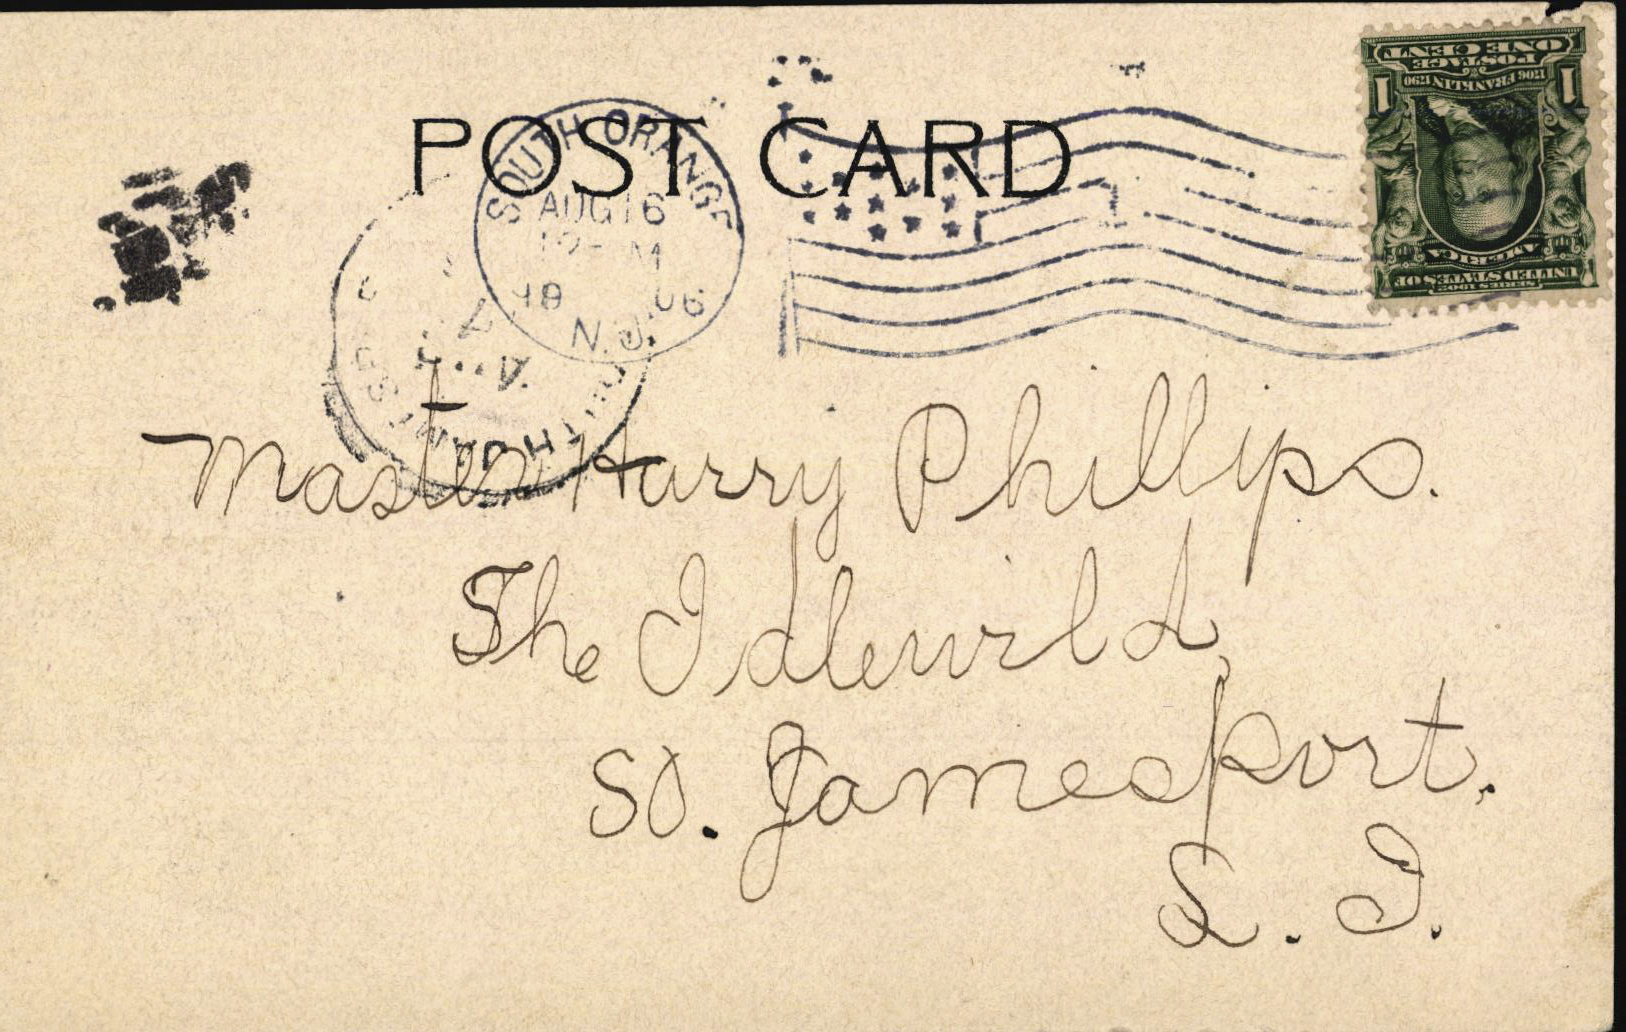 POST CARD
SOUTH ORANGE
AUG 16
M
19 06
N.J.
ONE CENT
POSTAGE
1706 FRANKLIN 1790
1 1
AMERICA
UNITED STATES OF
SERIES 1902
Master Harry Phillips.
The Idlewild,
So. Jamesport.
L. I.